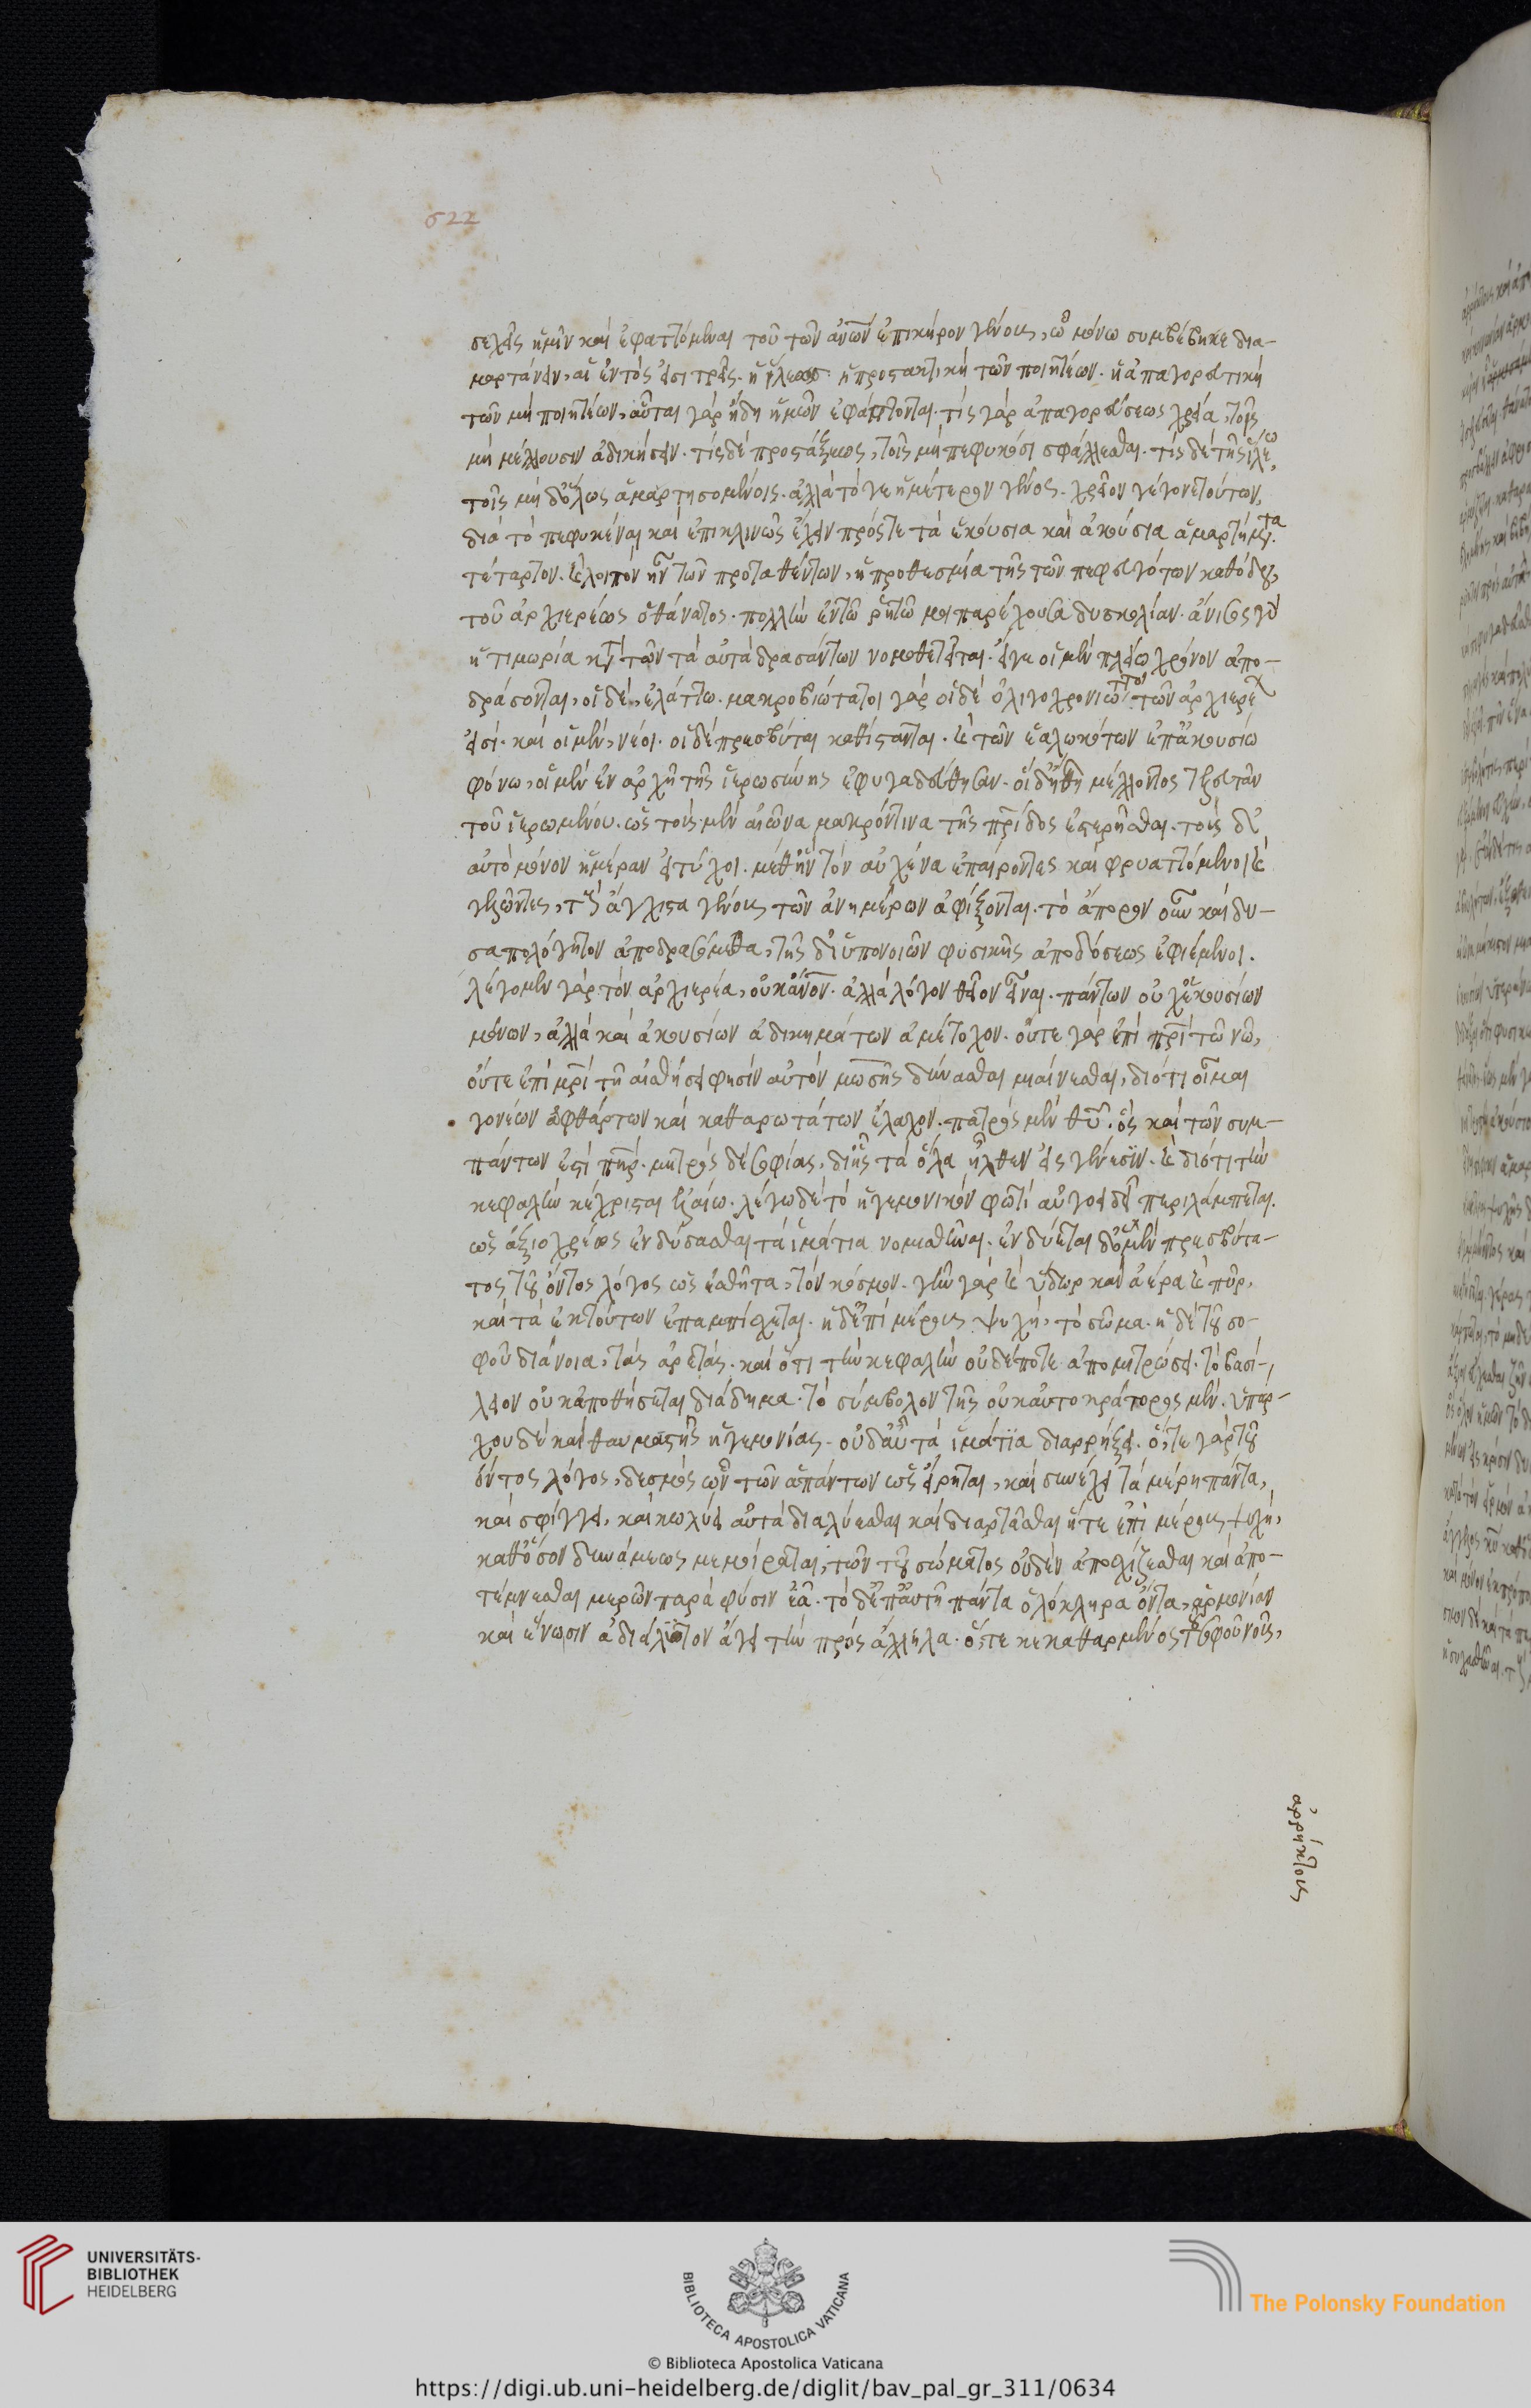 622
σεχεῖς ἡμῖν καὶ ἐφαπτόμεναι τοῦ τῶν ἀνων ἐπικήρου γένους, ὧ μόνω συμβέβηκε δια-
μαρτάνειν, αἱ ἐντός εἰσι τρεῖς. ἡ ἵλεως. ἡ προστακτικὴ τῶν ποιητέων. ἡ ἀπαγορευτικὴ
τῶν μὴ ποιητέων, αὗται γὰρ ἤδη ἡμῶν ἐφάπτονται. τίς γὰρ ἀπαγορεύσεως χρεία, τοῖς
μὴ μέλλουσιν ἀδικήσειν. τίς δὲ προστάξεως, τοῖς μὴ πεφυκόσι σφάλλεσθαι. τίς δὲ τῆς ἵλεω,
τοῖς μὴ δόλως ἁμαρτησομένοις. ἀλλὰ τό γε ἡμέτερον γένος. χρεῖον γέγονε τούτων,
διὰ τὸ πεφυκέναι καὶ ἐπικλινῶς ἔχειν πρός τε τὰ ἑκούσια καὶ ἀκούσια ἁμαρτήματα.
τέταρτον καὶ λοιπὸν ἦν τῶν προταθέντων, ἡ προθεσμία τῆς τῶν πεφευγότων καθόδου,
τοῦ ἀρχιερέως ὁ θάνατος. πολλὴν ἐν τῶ ῥητῶ μοι παρέχουσα δυσκολίαν. ἄνισος γὰρ
ἡ τιμωρία κατὰ τῶν τὰ αὐτὰ δρασάντων νομοθετεῖται. εἴγε οἱ μὲν πλείω χρόνον ἀπο-
δράσονται, οἱ δὲ, ἐλάττω. μακροβιώτατοι γὰρ οἱ δὲ ὀλιγοχρονιώτατοι τῶν ἀρχιερέων
εἰσί. καὶ οἱ μὲν, νέοι. οἱ δὲ πρεσβύται καθίστανται. καὶ τῶν ἑαλωκότων ἐπ' ἀκουσίω
φόνω, οἱ μὲν ἐν ἀρχῆ τῆς ἱερωσύνης ἐφυγαδεύθησαν. οἱ δ' ἤδη μέλλοντος τελευτᾶν
τοῦ ἱερωμένου. ὡς τοὺς μὲν αἰῶνα μακρόν τινα τῆς πρίδος ἐστερῆσθαι. τοὺς δὲ
αὐτὸ μόνον ἡμέραν εἰ τύχοι. μεθ' ἣν τὸν αὐχένα ἐπαίροντες καὶ φρυαττόμενοι καὶ
γελῶντες, τοῖς ἄγχιστα γένους τῶν ἀνηρημένων ἀφίξονται. τὸ ἄπορον οὖν καὶ δυ-
σαπολόγητον ἀποδρασόμεθα, τῆς δι' ὑπονοιῶν φυσικῆς ἀποδόσεως ἐφιέμενοι.
λέγομεν γὰρ τὸν ἀρχιερέα, οὐκ ἀνον. ἀλλὰ λόγον θεῖον εἶναι. πάντων οὐχ ἑκουσίων
μόνων, ἀλλὰ καὶ ἀκουσίων ἀδικημάτων ἀμέτοχον. οὔτε γὰρ ἐπὶ πρὶ τῶ νῶ,
οὔτε ἐπὶ μρὶ τῆ αἰσθήσει φησὶν αὐτὸν μωσῆς δύνασθαι μιαίνεσθαι, διότι οἶμαι
γονέων ἀφθάρτων καὶ καθαρωτάτων ἔλαχεν. πατρὸς μὲν θυ. ὃς καὶ τῶν συμ-
πάντων ἐστὶ πηρ. μητρὸς δὲ σοφίας, δι' ἧς τὰ ὅλα ἦλθεν εἰς γένεσϊν. καὶ διότι τὴν
κεφαλὴν κέχρισται ἐλαίω. λέγω δὲ τὸ ἡγεμονικὸν φωτὶ αὐγοειδεῖ περιλάμπεται.
ὡς ἀξιόχρεως ἐνδύσασθαι τὰ ἱμάτια νομισθῆναι. ἐνδύεται δ' ὁ μὲν πρεσβύτα-
τος τοῦ ὄντος λόγος ὡς ἐσθῆτα, τὸν κόσμον. γῆν γὰρ καὶ ὕδωρ καὶ ἀέρα καὶ πῦρ,
καὶ τὰ ἐκ τούτων ἐπαμπίσχεται. ἡ δ' ἐπὶ μέρους ψυχὴ, τὸ σῶμα. ἡ δὲ τοῦ σο-
φοῦ διάνοια, τὰς ἀρετάς. καὶ ὅτι τὴν κεφαλὴν οὐδέποτε ἀπομιτρώσει. τὸ βασί-
λειον οὐκ ἀποθήσεται διάδημα. τὸ σύμβολον τῆς οὐκ αὐτοκράτορος μὲν. ὑπάρ-
χου δὲ καὶ θαυμαστῆς ἡγεμονίας. οὐδ' αὖ τὰ ἱμάτϊα διαρρήξει. ὅ, τε γὰρ τοῦ
ὄντος λόγος, δεσμὸς ὢν τῶν ἁπάντων ὡς εἴρηται, καὶ συνέχει τὰ μέρη πάντα,
καὶ σφίγγει, καὶ κωλύει αὐτὰ διαλύεσθαι καὶ διαρτᾶσθαι ἥ τε ἐπὶ μέρους ψυχὴ,
καθ' ὅσον δυνάμεως μεμοίραται, τῶν τοῦ σώματος οὐδὲν ἀποσχίζεσθαι καὶ ἀπο-
τέμνεσθαι μερῶν παρὰ φύσιν ἐᾶ. τὸ δ' ἐπ' αὐτῆ πάντα ὁλόκληρα ὄντα, ἁρμονίαν
καὶ ἕνωσιν ἀδιάλυτον ἄγει τὴν πρὸς ἄλληλα. ὅ, τε κεκαθαρμένος τοῦ σοφοῦ νοῦς,
ἀρρήκτους
UNIVERSITÄTS-
BIBLIOTHEK
HEIDELBERG
BIBLIOTECA APOSTOLICA VATICANA
The Polonsky Foundation
© Biblioteca Apostolica Vaticana
https://digi.ub.uni-heidelberg.de/diglit/bav_pal_gr_311/0634